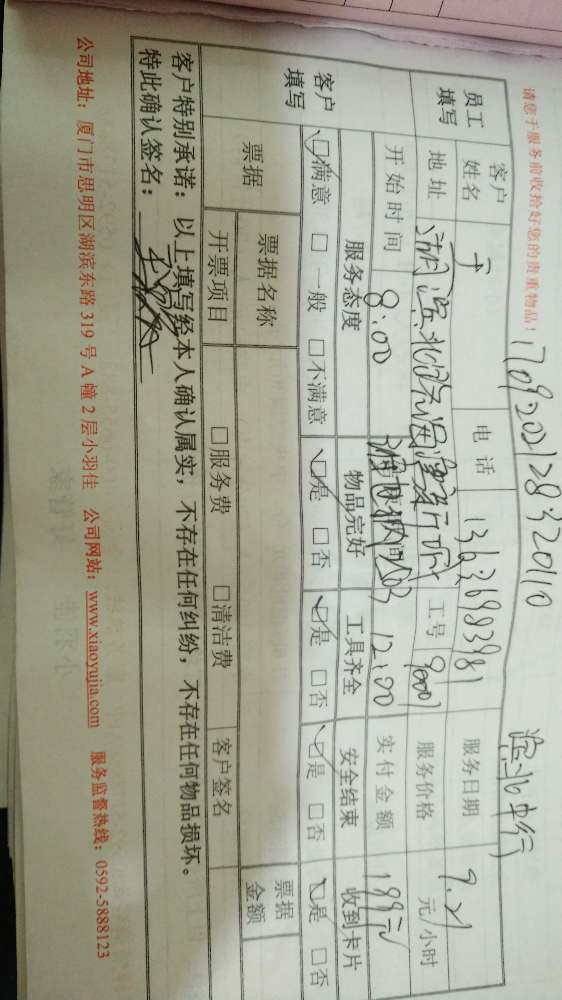 请您于服务前收拾好您的贵重物品！
1709202128320110
员工填写
客户姓名
电话
服务日期 9.21
地址
工号
服务价格 元/小时
开始时间 8:00
12:00
实付金额 199元
客户填写
服务态度 物品完好 工具齐全 安全结束 收到卡片
☑满意 □一般 □不满意 ☑是 □否 ☑是 □否 ☑是 □否 ☑是 □否
票据 票据名称 票据金额
开票项目 □服务费 □清洁费 客户签名
客户特别承诺：以上填写经本人确认属实，不存在任何纠纷，不存在任何物品损坏。
特此确认签名：
公司地址：厦门市思明区湖滨东路 319 号 A 幢 2 层小羽佳 公司网站：www.xiaoyujia.com 服务监督热线：0592-5888123